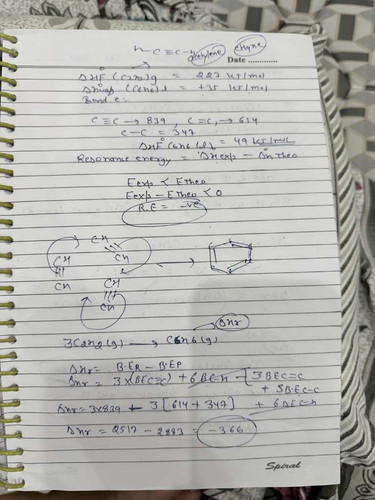 H-C≡C-H acetylene ethyne
Date ............
ΔHf (C2H2)g = 227 kJ/mol
(C6H6)l = +45 kJ/mol
Bond
C≡C → 839, C=C, → 614
C-C = 347
ΔHf° C6H6(l) = 49 kJ/mol
Resonance energy = ΔH°exp - ΔH°theo
Eexp < Etheo
Eexp - Etheo < 0
R.E = -ve
CH
CH CH
CH
CH
CH
ΔHr
3C2H2(g) → C6H6(g)
ΔHr = B.ER - B.EP
ΔHr = 3×(BEC≡C) + 6BEC-H - [3BEC=C
+ 3BEC-C
+ 6BEC-H
ΔHr = 3×839 - 3[614+347]
ΔHr = 2517 - 2883 = -366
Spiral